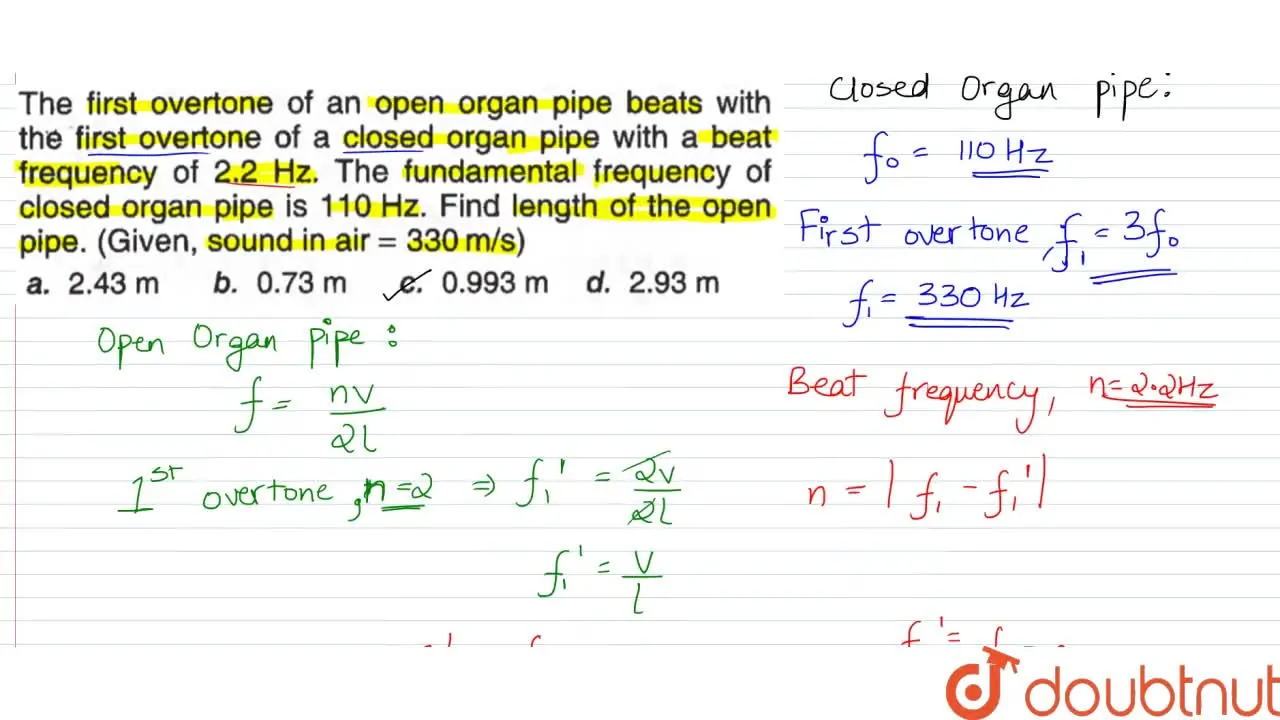 The first overtone of an open organ pipe beats with
the first overtone of a closed organ pipe with a beat
frequency of 2.2 Hz. The fundamental frequency of
closed organ pipe is 110 Hz. Find length of the open
pipe. (Given, sound in air = 330 m/s)
a. 2.43 m b. 0.73 m c. 0.993 m d. 2.93 m
Open Organ pipe :
f = nv / 2l
1st overtone, n = 2 ⇒ f₁' = 2v / 2l
f₁' = v / l
Closed Organ pipe :
f₀ = 110 Hz
First overtone, f₁ = 3f₀
f₁ = 330 Hz
Beat frequency, n = 2.2Hz
n = | f₁ - f₁' |
doubtnut